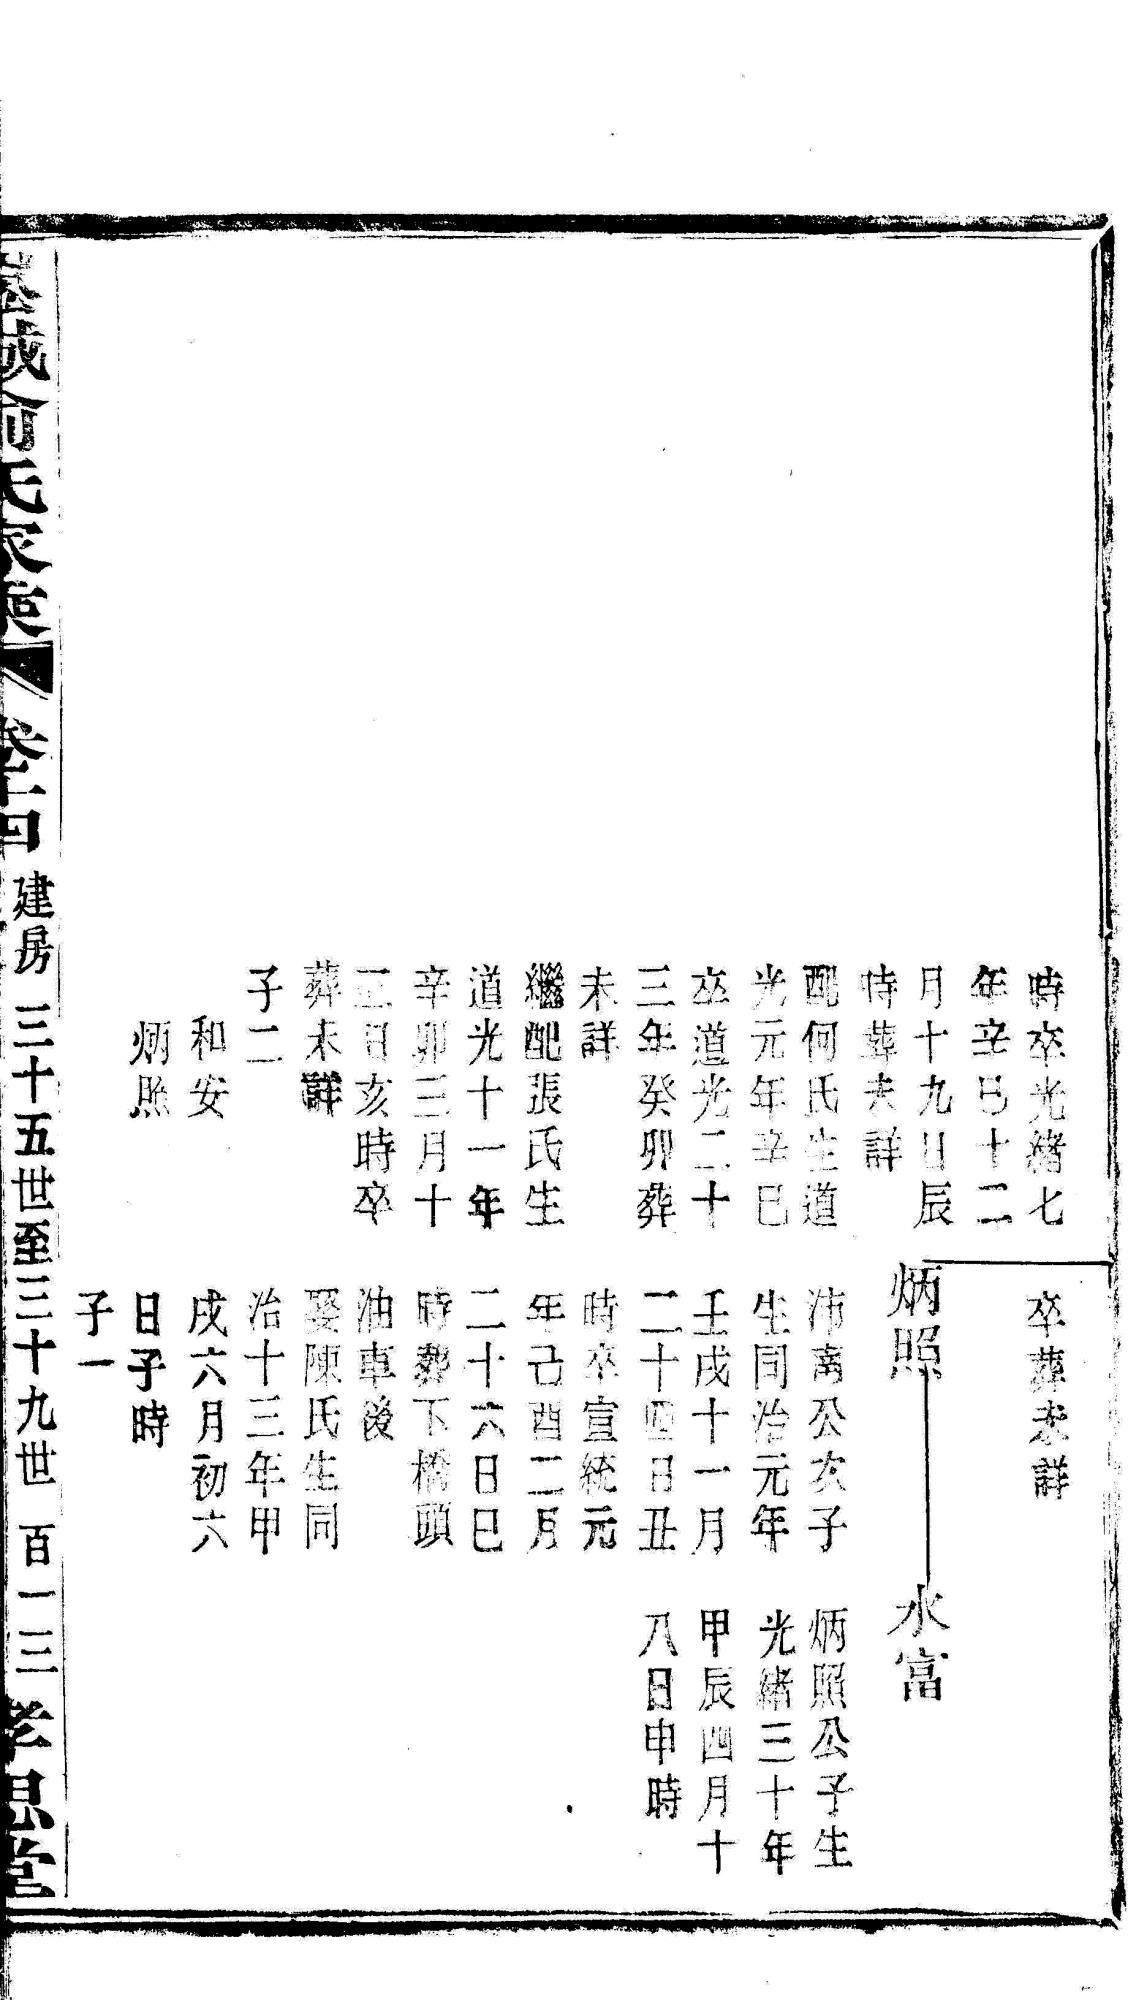 時卒光緒七
年辛巳十二
月十九日辰
時葬未詳
配何氏生道
光元年辛巳
卒道光二十
三年癸卯葬
未詳
繼配張氏生
道光十一年
辛卯三月十
二日亥時卒
葬未詳
子二
和安
炳照
卒葬未詳
炳照
沛离公次子
生同治元年
壬戌十一月
二十四日丑
時卒宣統元
年己酉二月
二十六日巳
時葬下橋頭
油車後
娶陳氏生同
治十三年甲
戌六月初六
日子時
子一
水富
炳照公子生
光緒三十年
甲辰四月十
八日申時
城俞氏家乘 卷十四 建房 三十五世至三十九世 百一三 孝思堂